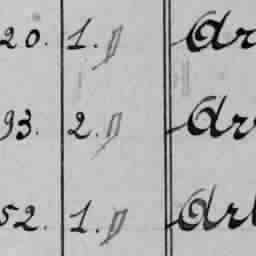 20. 1. Ar
93. 2. Ar
52. 1. Arl